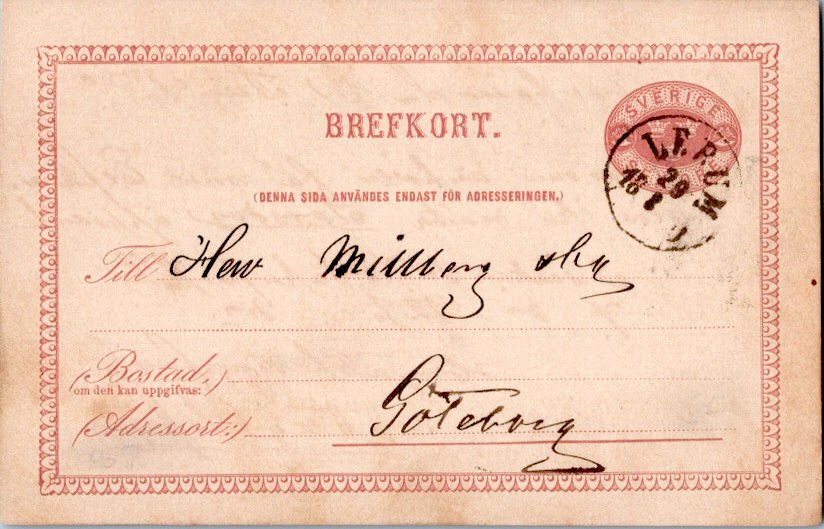 SVERIGE
BREFKORT.
LERUM
29
18 8
(DENNA SIDA ANVÄNDES ENDAST FÖR ADRESSERINGEN.)
Till Herr Millberg
(Bostad,)
om den kan uppgifvas:
(Adressort:) Göteborg